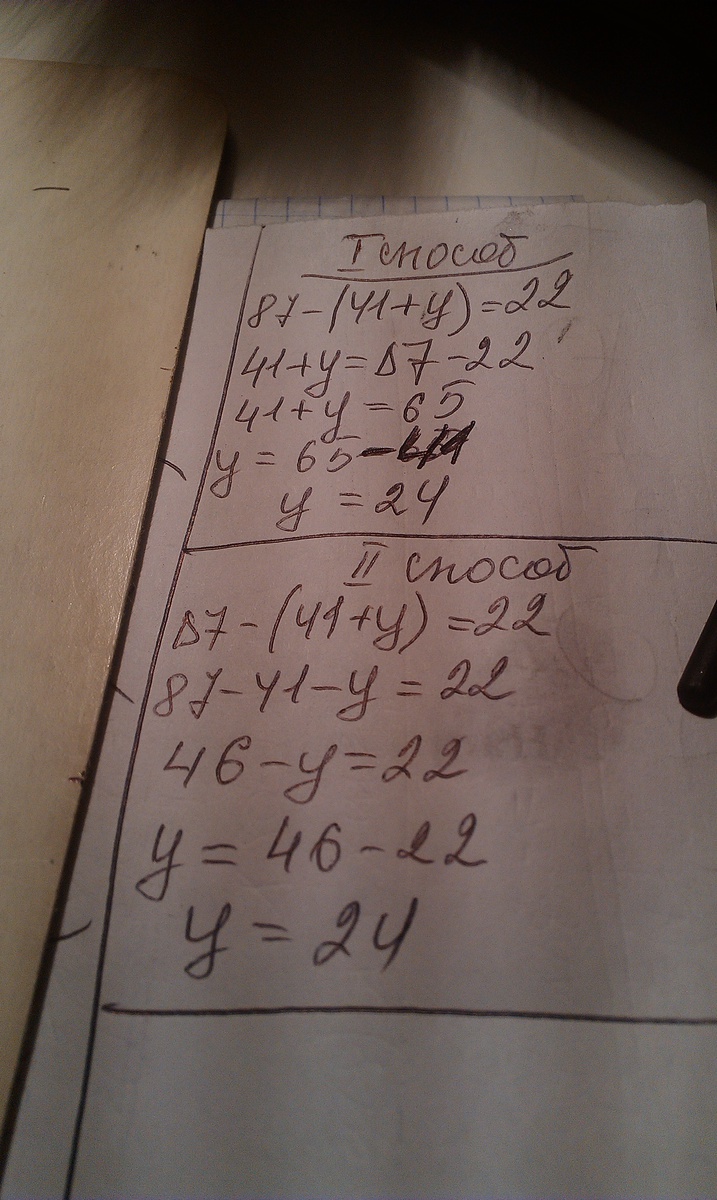 I способ
87-(41+y)=22
41+y=87-22
41+y=65
y=65-41
y=24
II способ
87-(41+y)=22
87-41-y=22
46-y=22
y=46-22
y=24